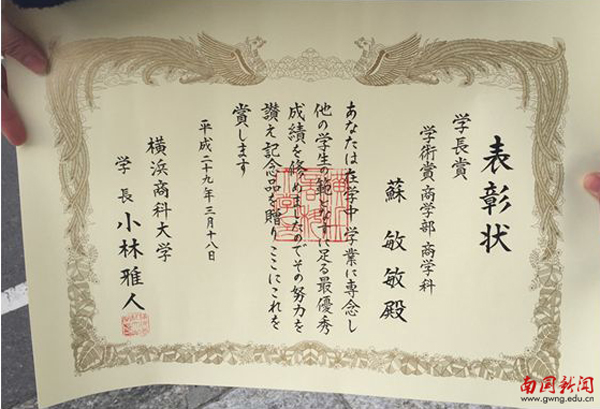 表彰状
学長賞
学術賞 商学部 商学科
蘇 敏敏 殿
あなたは在学中 学業に専念し
他の学生の範となすに足る最優秀
成績を修めましたのでその努力を
讃え 記念品を贈り ここにこれを
賞します
平成二十九年三月十八日
横浜商科大学
学長 小林雅人
南国新闻
www.gwng.edu.cn